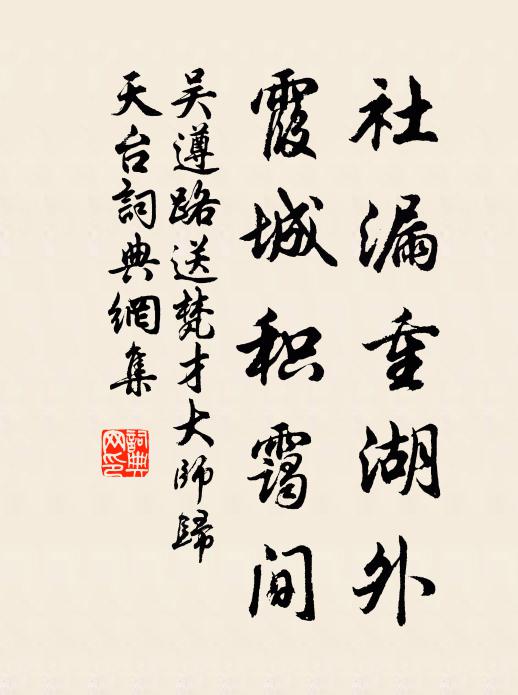 社漏重湖外
霞城积霭间
吴遵路送梵才大师歸
天台詞典網集
詞典网印